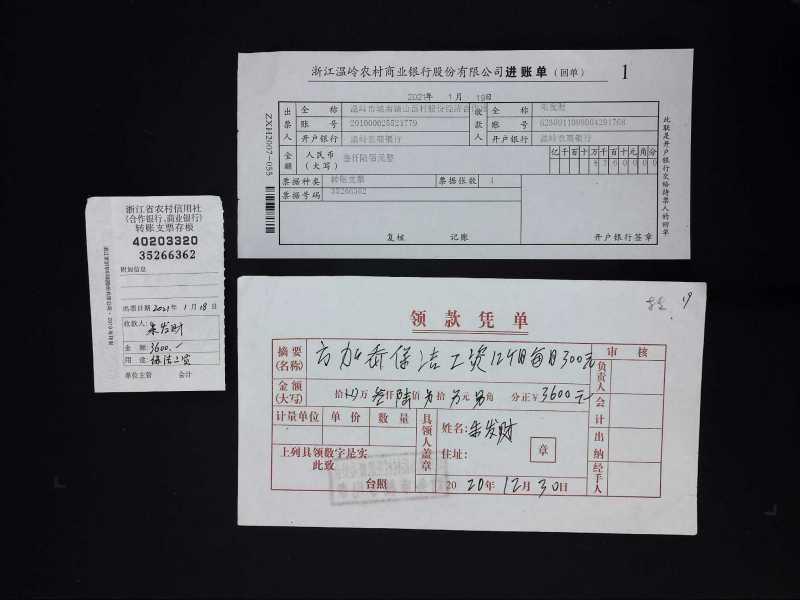 浙江温岭农村商业银行股份有限公司进账单（回单） 1
2021年 1 月 19日
出票人 全称
收款人 全称 朱发财
账号 201000025521779
账号
开户银行 温岭农商银行
开户银行 温岭农商银行
金额 人民币（大写） 叁仟陆佰元整
亿千百十万千百十元角分
票据种类 转账支票 票据张数 1
票据号码 35266362
复核 记账 开户银行签章
ZXH2007-055
此联是开户银行交给持票人的回单
浙江省农村信用社
（合作银行、商业银行）
转账支票存根
40203320
35266362
附加信息
出票日期 2021年 1月 18日
收款人：朱发财
金额：3600.—
用途：保洁工资
单位主管 会计
19
领款凭单
摘要（名称） 保洁工资12个月每月300元
审核
金额（大写） 拾 万 叁仟 陆佰 拾 元 角 分正￥3600元
计量单位 单价 数量
具领人盖章
姓名：朱发财
住址：
章
上列具领数字是实
此致
台照
2020年12月30日
负责人
会计
出纳
经手人